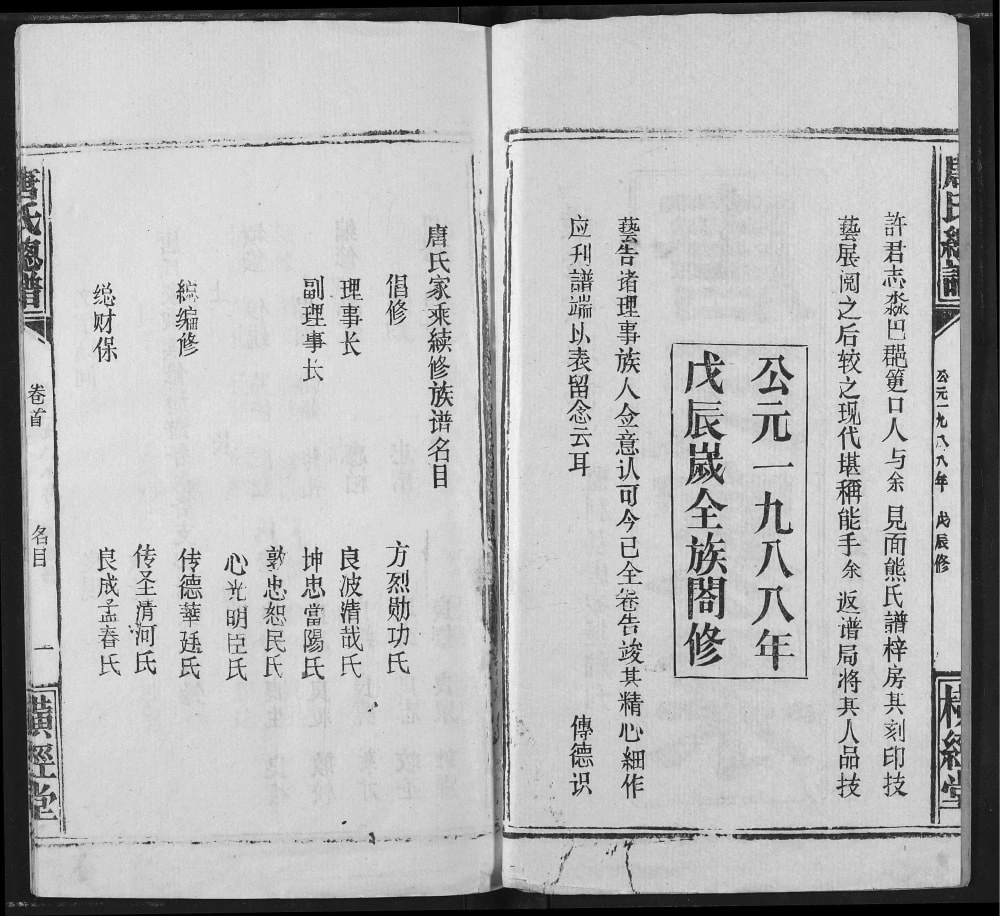 唐氏總譜
公元一九八八年 戊辰修
橫經堂
許君志淼巴郡篁口人与余見面熊氏譜梓房其刻印技
藝展閱之后较之现代堪稱能手余返谱局將其人品技
公元一九八八年
戊辰嵗全族閤修
藝告诸理事族人佥意认可今已全卷告竣其精心细作
应刊譜端以表留念云耳
傳德识
唐氏家乘續修族谱名目
倡修 方烈勋功氏
理事长 良波清哉氏
副理事长 坤忠當陽氏
敦忠恕民氏
心光明臣氏
總编修 传德華廷氏
传圣清河氏
總财保 良成孟春氏
唐氏總譜
卷首
名目
一
橫經堂